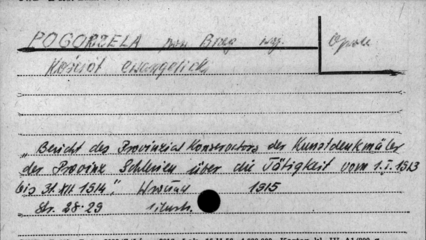 POGORZELA pow. Brzeg woj. Opole
Kościół ewangelicki
"Bericht des Provinzial Konservators der Kunstdenkmäler
der Provinz Schlesien über die Tätigkeit vom 1.I.1913
bis 31.XII 1914". Wrocław 1915
Str. 28-29 ilustr.